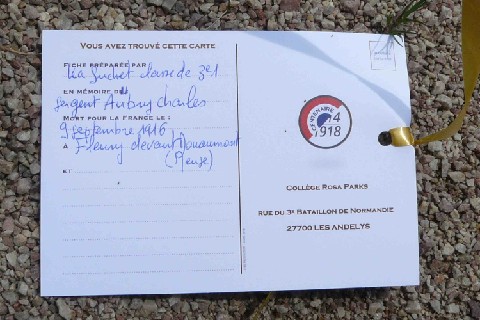 VOUS AVEZ TROUVÉ CETTE CARTE
FICHE PRÉPARÉE PAR
Léa Suchet classe de 3e1
EN MÉMOIRE DE
Sergent Aubry Charles
MORT POUR LA FRANCE LE :
9 septembre 1916
À Fleury devant Douaumont
(Meuse)
ET :
CENTENAIRE
14
1918
COLLÈGE ROSA PARKS
RUE DU 3E BATAILLON DE NORMANDIE
27700 LES ANDELYS